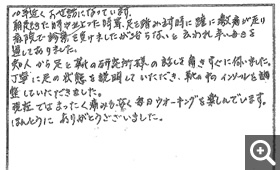 10年近くお世話になっています。
朝起きた時や立上った時等、足を踏み出す時に踵に激痛が走り
病院で治療を受けましたが治らないと云われ辛い毎日を
過しておりました。
知人から足と靴の研究所様の話しを聞きすぐに伺いました。
丁寧に足の状態を説明していただき、靴の中のインソールを調整
していただきました。
現在ではまったく痛みもなく毎日ウオーキングを楽しんでいます。
ほんとうに ありがとうございました。